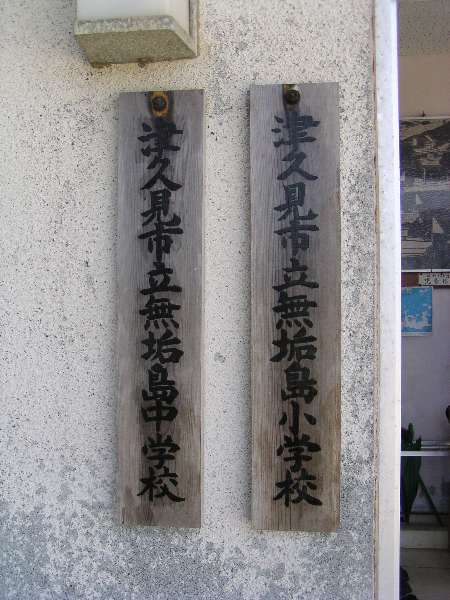 津久見市立無垢島小学校
津久見市立無垢島中学校